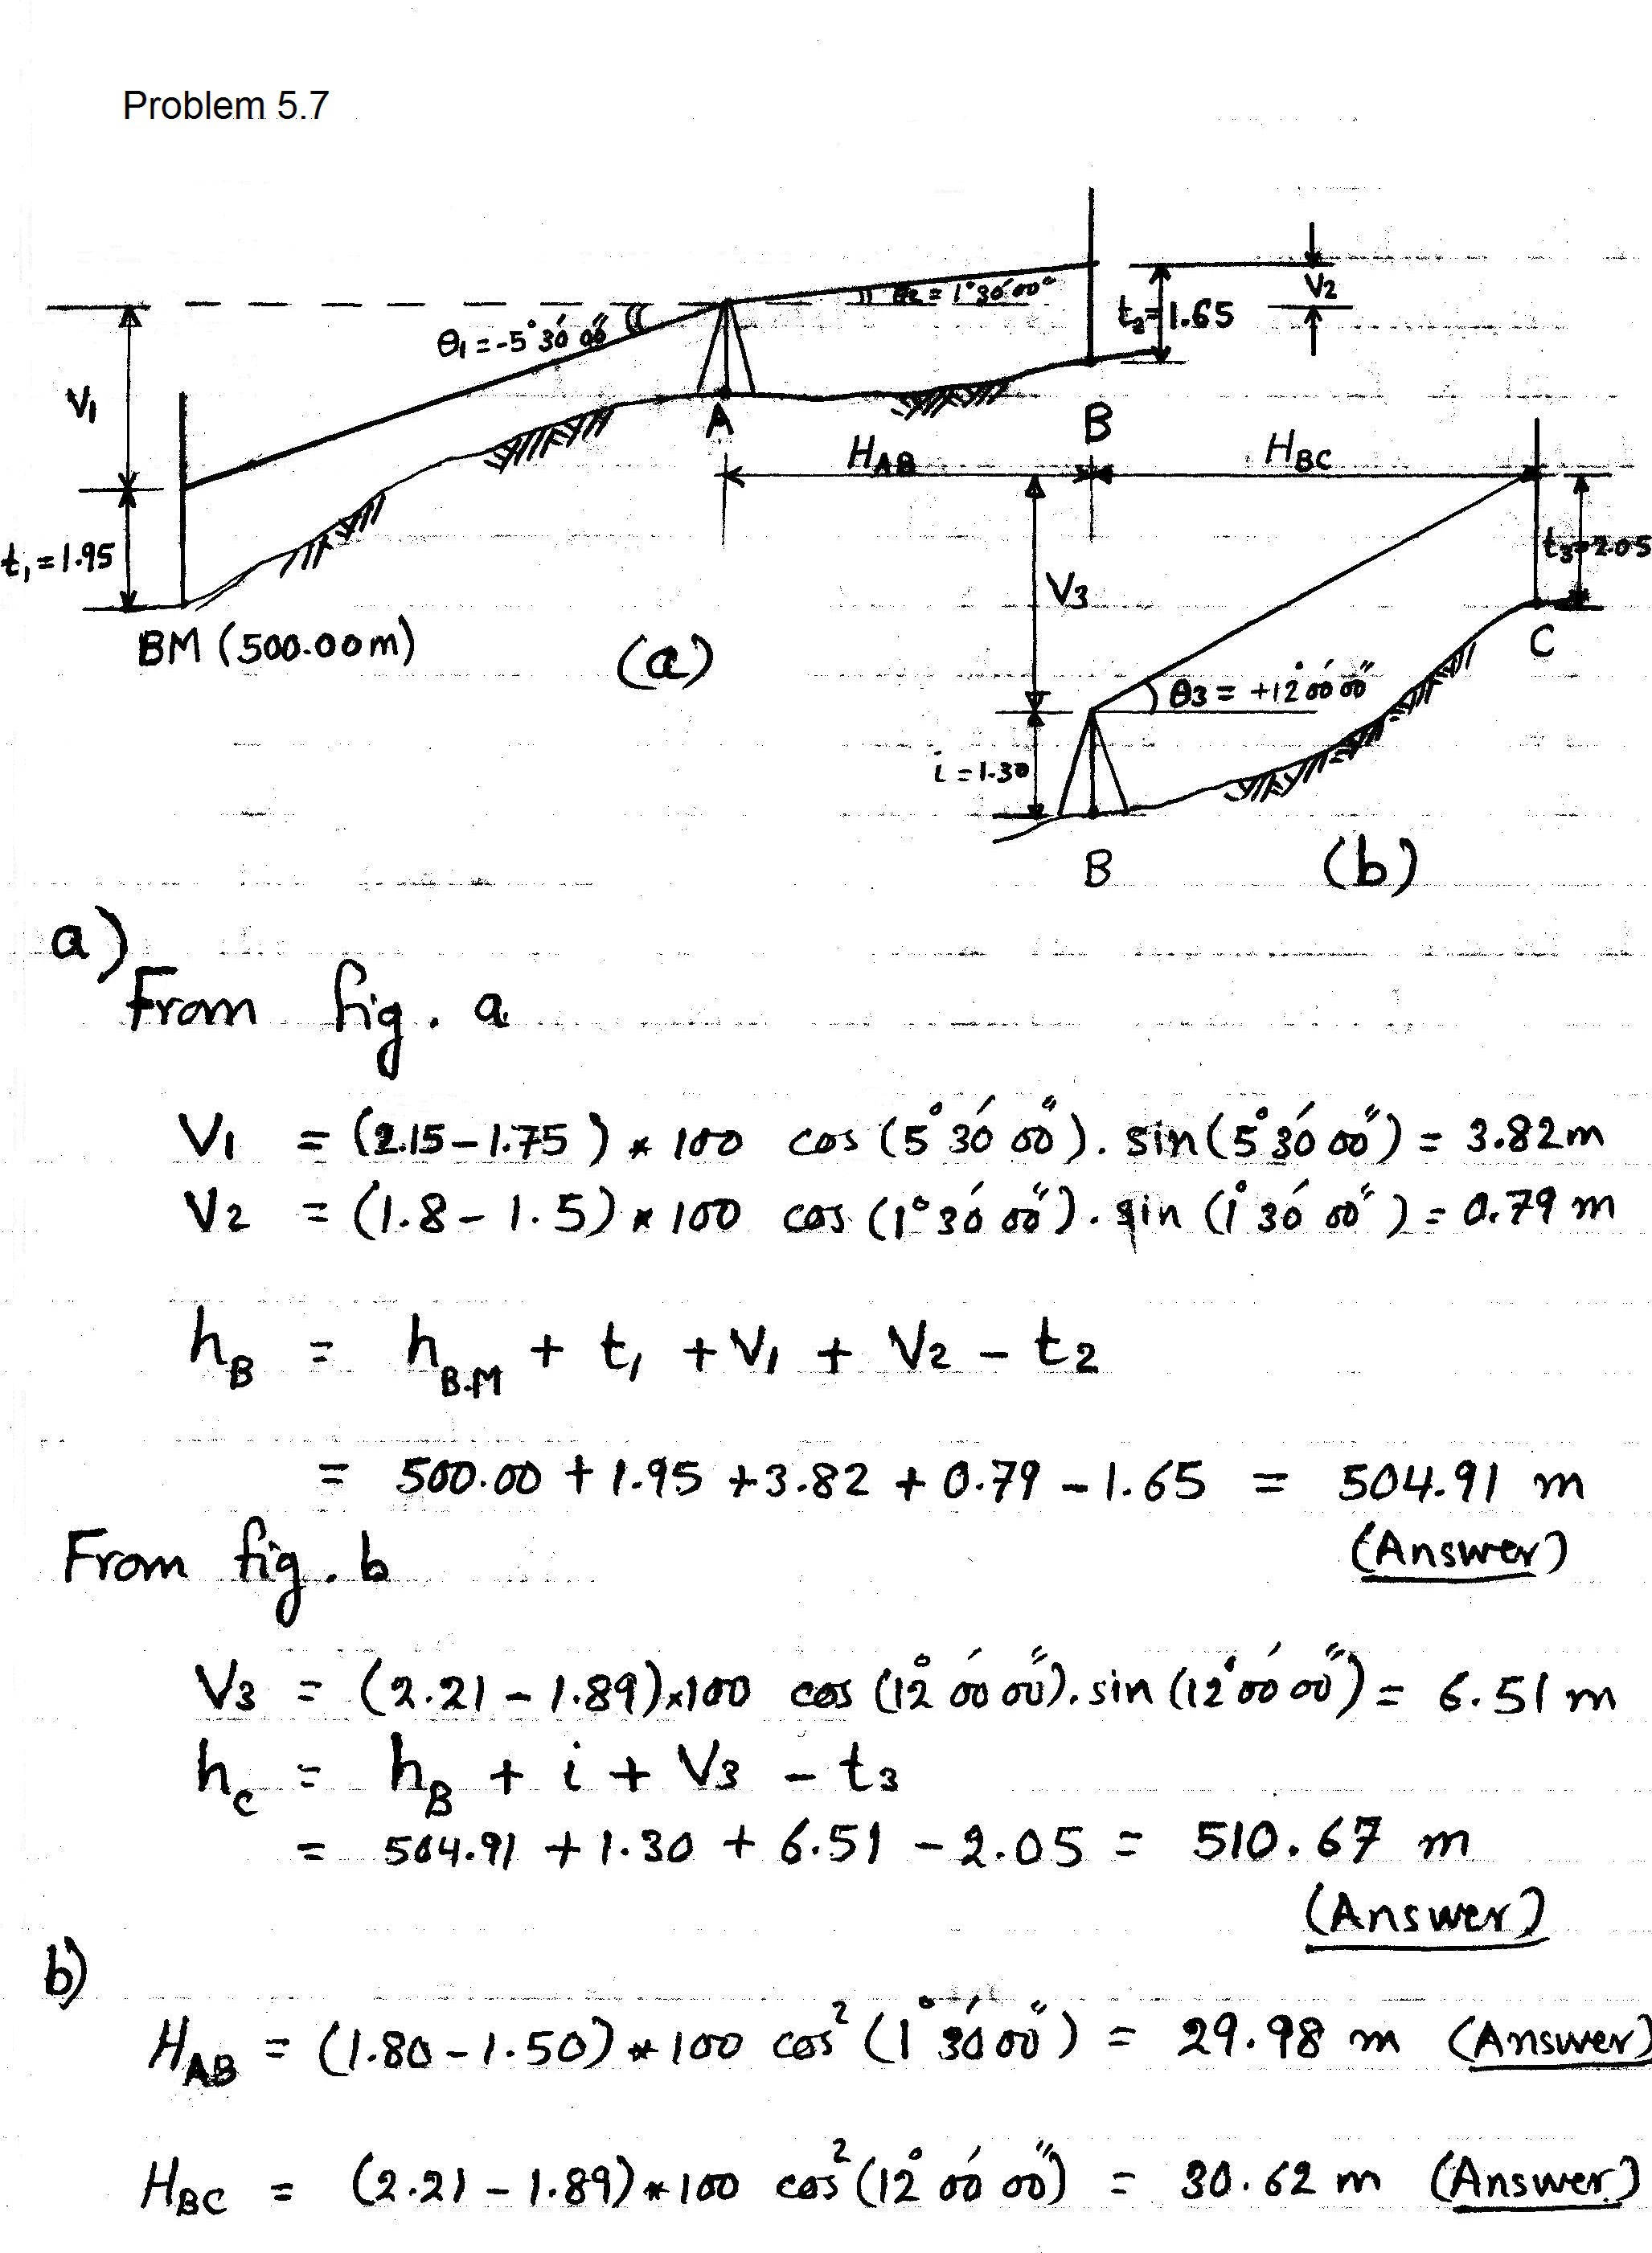 Problem 5.7
θ1 = -5°30'00"
θ2 = 1°30'00"
V2
t2=1.65
V1
A
B
HAB
HBC
t1 = 1.95
t3=2.05
V3
BM (500.00m)
(a)
C
θ3 = +12°00'00"
i = 1.30
B
(b)
a)
From fig. a
V1 = (2.15-1.75) * 100 cos (5°30'00"). sin(5°30'00") = 3.82m
V2 = (1.8 - 1.5) * 100 cos (1°30'00"). sin (1°30'00") = 0.79 m
hB = hB.M + t1 + V1 + V2 - t2
= 500.00 + 1.95 + 3.82 + 0.79 - 1.65 = 504.91 m
(Answer)
From fig. b
V3 = (2.21 - 1.89)x100 cos (12°00'00"). sin (12°00'00") = 6.51 m
hc = hB + i + V3 - t3
= 504.91 + 1.30 + 6.51 - 2.05 = 510.67 m
(Answer)
b)
HAB = (1.80 - 1.50) * 100 cos² (1°30'00") = 29.98 m (Answer)
HBC = (2.21 - 1.89) * 100 cos² (12°00'00") = 30.62 m (Answer)